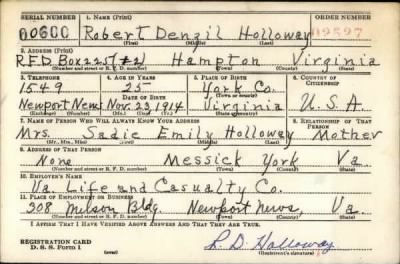 SERIAL NUMBER 1. Name (Print) ORDER NUMBER
00600 Robert Denzil Holloway 02597
(First) (Middle) (Last)
2. Address (Print)
R.F.D. Box 225 (#2) Hampton Virginia
(Number and street or R. F. D. number) (Town) (County) (State)
3. Telephone 4. Age in Years 5. Place of Birth 6. Country of Citizenship
1549 25 York Co.
Date of Birth (Town or county)
Newport News Nov. 23, 1914 Virginia U.S.A.
(Exchange) (Number) (Mo.) (Day) (Yr.) (State or country)
7. Name of Person Who Will Always Know Your Address 8. Relationship of That Person
Mrs. Sadie Emily Holloway Mother
(Mr., Mrs., Miss) (First) (Middle) (Last)
9. Address of That Person
None Messick York Va
(Number and street or R. F. D. number) (Town) (County) (State)
10. Employer's Name
Va. Life and Casualty Co.
11. Place of Employment or Business
308 Melson Bldg. Newport News, Va
(Number and street or R. F. D. number) (Town) (County) (State)
I Affirm That I Have Verified Above Answers and That They Are True.
REGISTRATION CARD
D. S. S. Form 1 R. D. Holloway
(Registrant's signature)